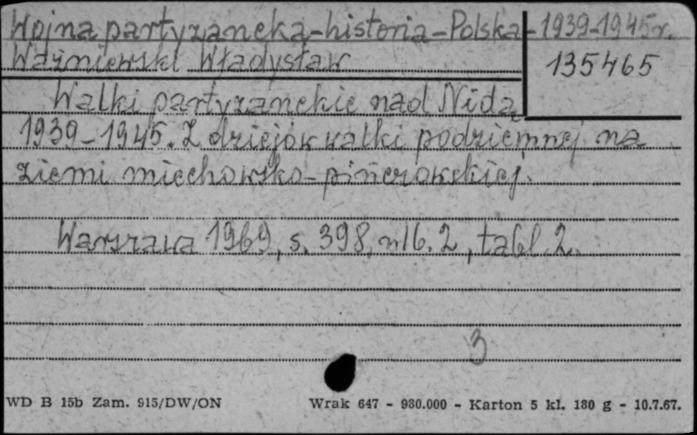 Wojna partyzancka - historia - Polska - 1939-1945 r.
Ważniewski Władysław
135465
Walki partyzanckie nad Nidą
1939-1945. Z dziejów walki podziemnej na
ziemi miechowsko-pińczowskiej.
Warszawa 1969, s. 398, nlb. 2, tabl. 2.
3
WD B 15b Zam. 915/DW/ON Wrak 647 - 930.000 - Karton 5 kl. 180 g - 10.7.67.